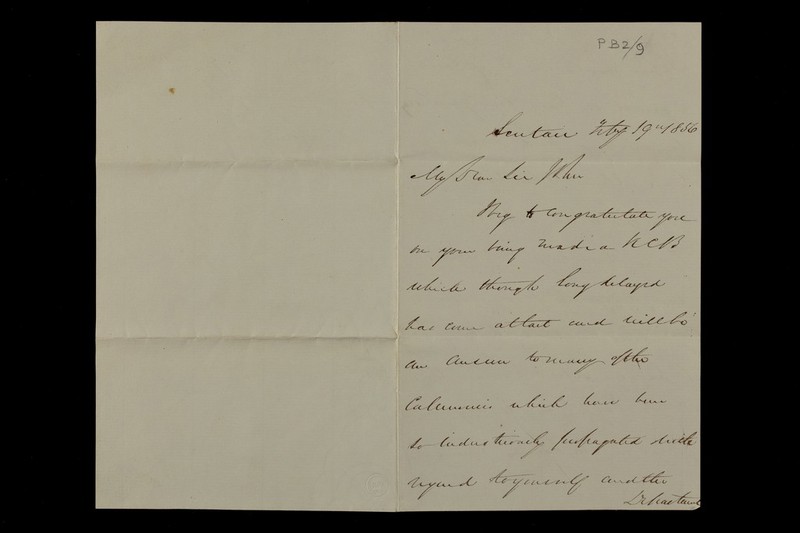 PB2/9
Scutari Feby 19th 1856
My Dear Sir John
I beg to congratulate you
on your being made a KCB
which though long delayed
has come at last and will be
an answer to many of the
Calumnies which have been
so industriously propagated with
regard to yourself and the
Department